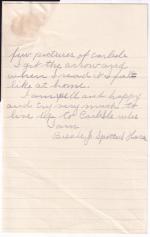 few pictures of Carlisle
I got the arrow and
when I read it I felt
like at home.
I am well and happy
and try very much to
live up to Carlisle rules
I am
Bessie J Spotted Horse